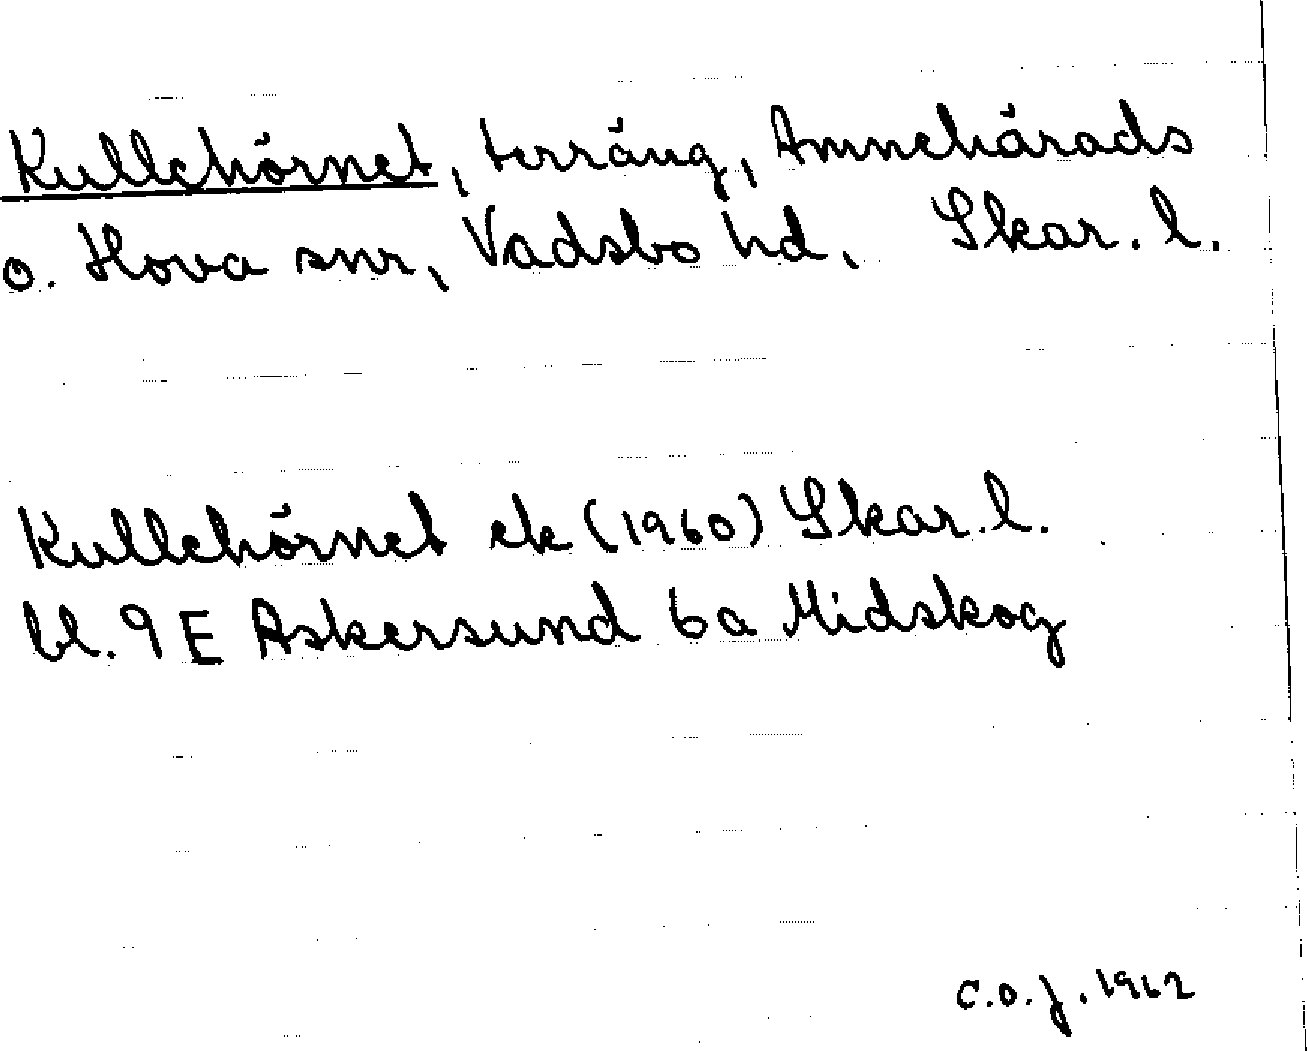 Kullehörnet, terräng, Amnehärads
o. Hova snr, Vadsbo hd, Skar. l.
Kullehörnet ek (1960) Skar. l.
bl. 9 E Askersund 6a Midskog
C.O.J. 1962